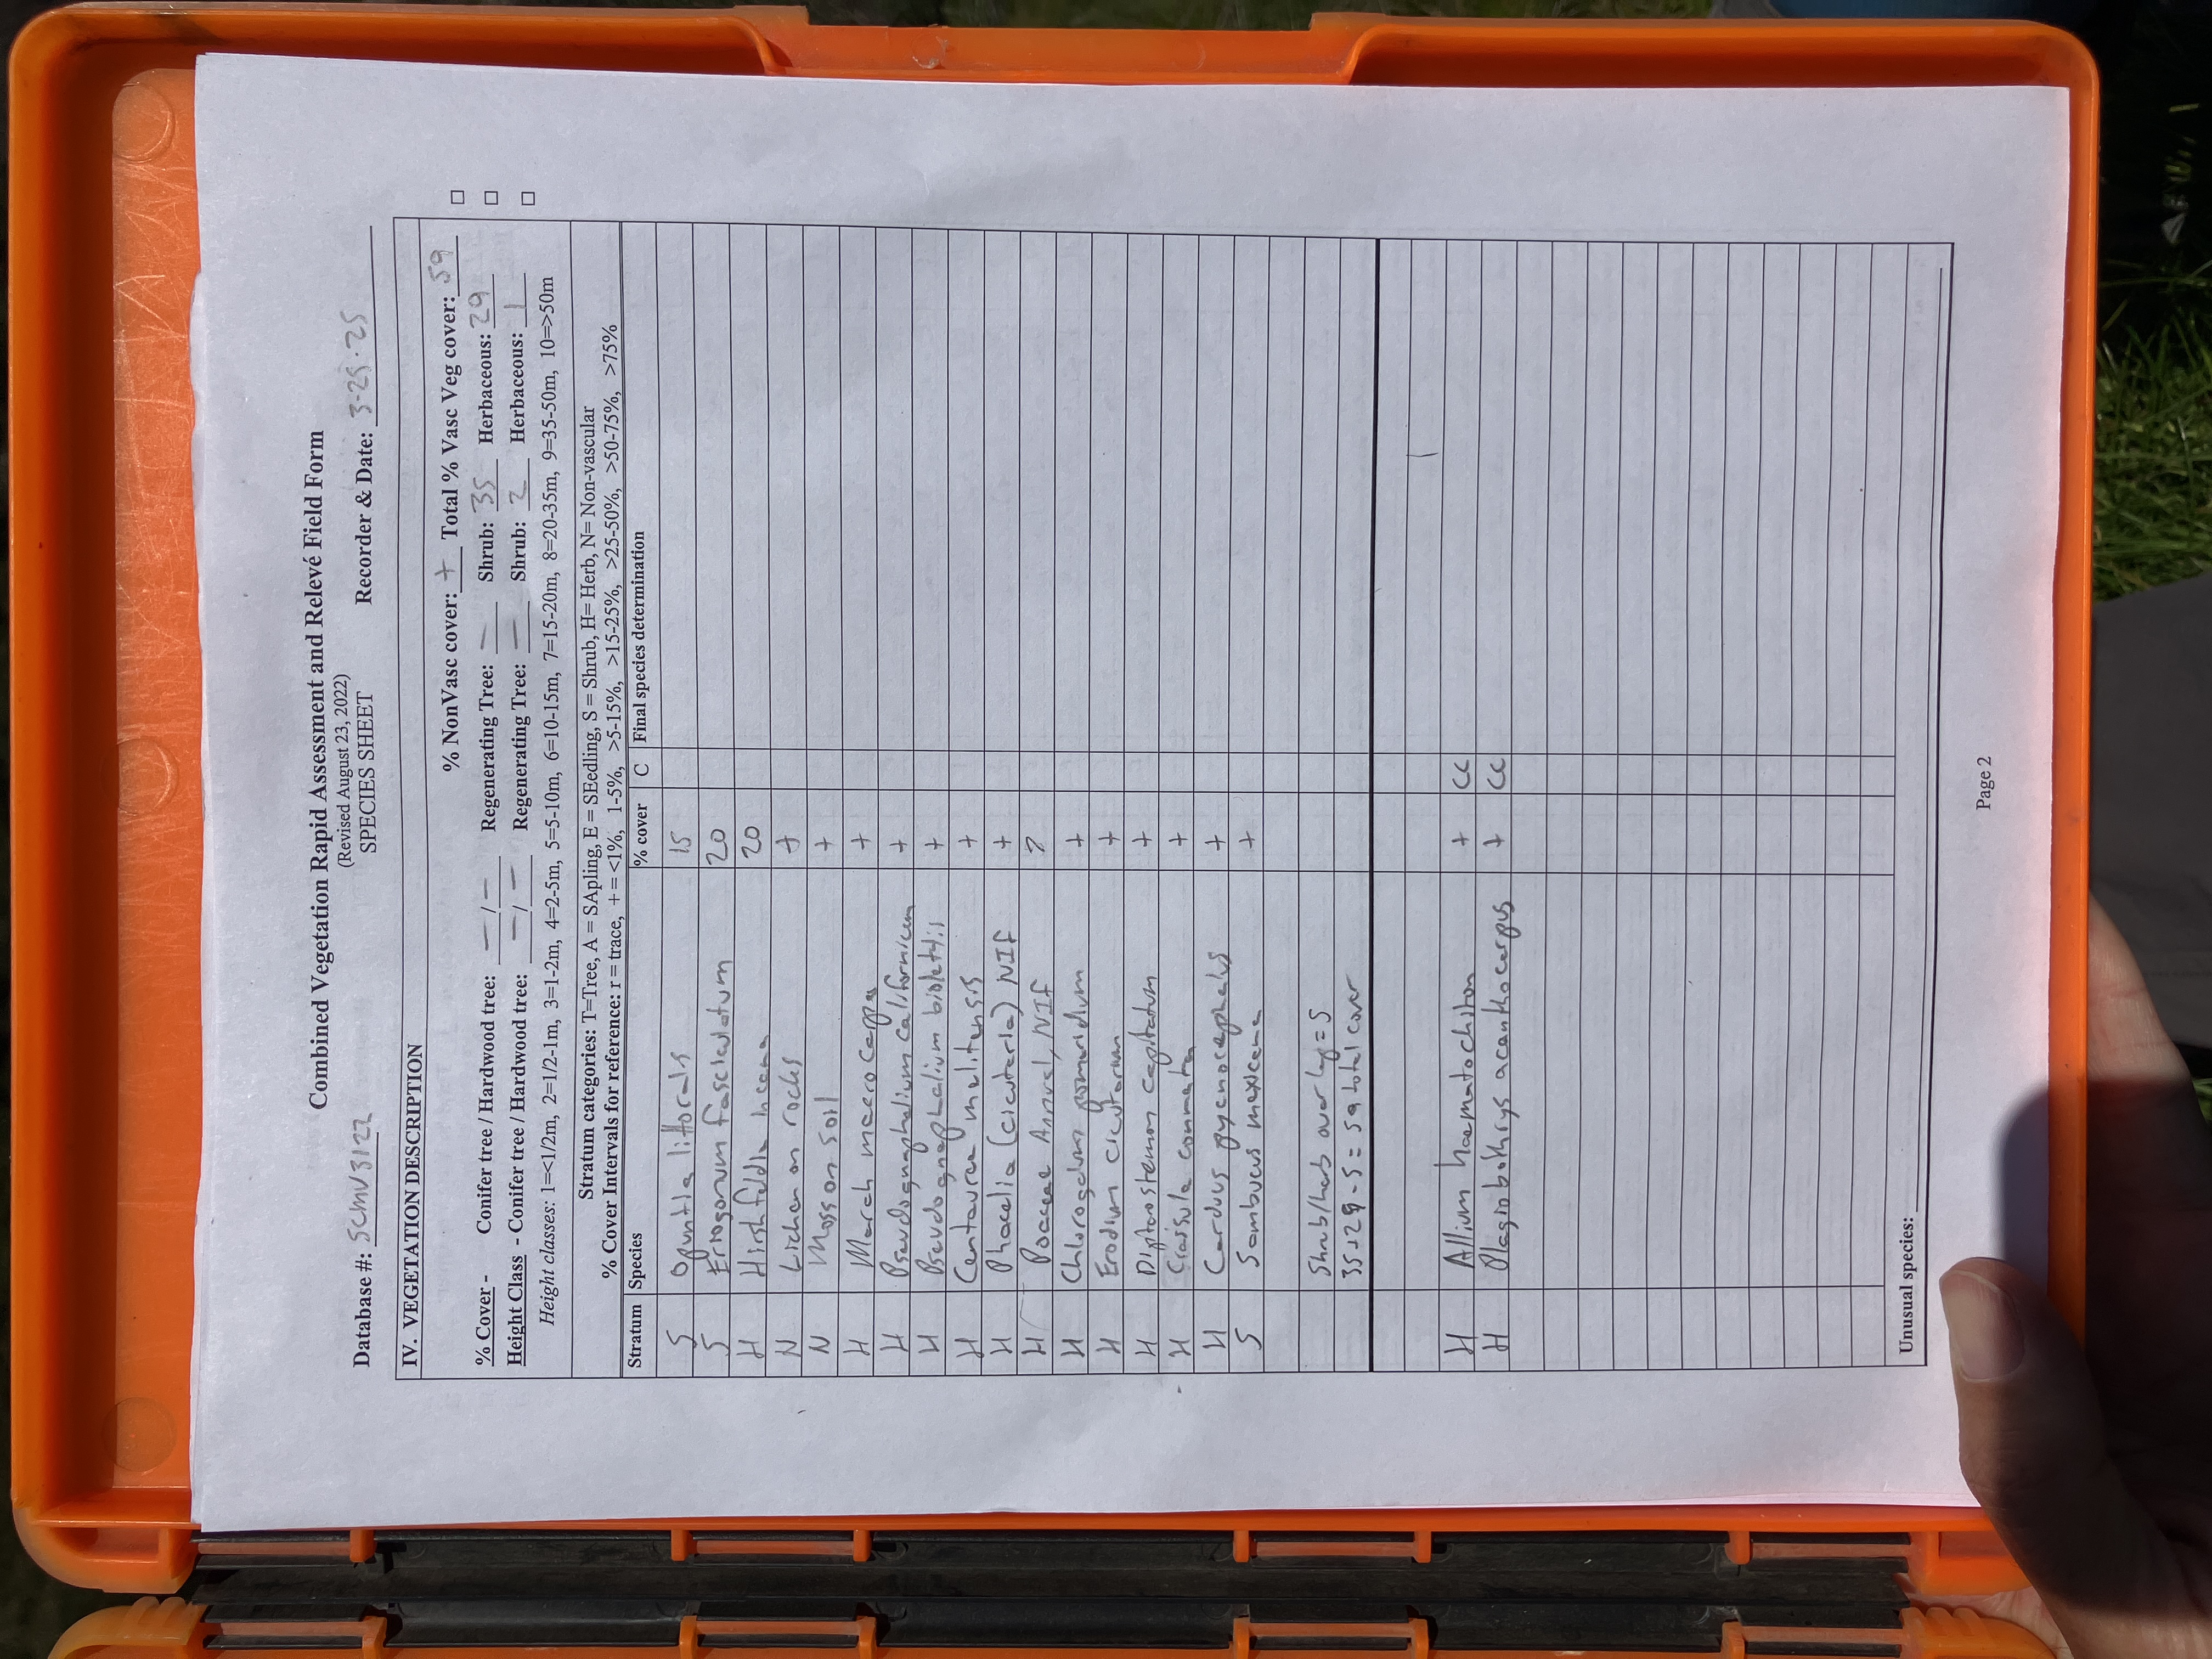 Combined Vegetation Rapid Assessment and Relevé Field Form
(Revised August 23, 2022)
SPECIES SHEET
Database #: SCMV3122 Recorder & Date: 3-25-25
IV. VEGETATION DESCRIPTION
% NonVasc cover: + Total % Vasc Veg cover: 59 □
% Cover - Conifer tree / Hardwood tree: - / - Regenerating Tree: - Shrub: 35 Herbaceous: 29 □
Height Class - Conifer tree / Hardwood tree: - / - Regenerating Tree: - Shrub: 2 Herbaceous: 1 □
Height classes: 1=<1/2m, 2=1/2-1m, 3=1-2m, 4=2-5m, 5=5-10m, 6=10-15m, 7=15-20m, 8=20-35m, 9=35-50m, 10=>50m
Stratum categories: T=Tree, A = SApling, E = SEedling, S = Shrub, H= Herb, N= Non-vascular
% Cover Intervals for reference: r = trace, + = <1%, 1-5%, >5-15%, >15-25%, >25-50%, >50-75%, >75%
Stratum Species % cover C Final species determination
S Opuntia littorals 15
S Eriogonum fasciculatum 20
H Hirshfeldia incana 20
N Lichen on rocks +
N Moss on soil +
H Marah macrocarpa +
H Pseudognaphalium californicum +
H Pseudognaphalium biolettii +
H Centaurea melitensis +
H Phacelia (cicutaria) NIF +
H Poaceae Annual, NIF 7
H Chlorogalum pomeridium +
H Erodium cicutarium +
H Diptostemon capitatum +
H Crassula connata +
H Carduus pycnocephalus +
S Sambucus mexicana +
Shrub/herb overlap = 5
35+29-5 = 59 total cover
H Allium haematochiton + CC
H Plagiobothrys acanthocarpus + CC
Unusual species:
Page 2